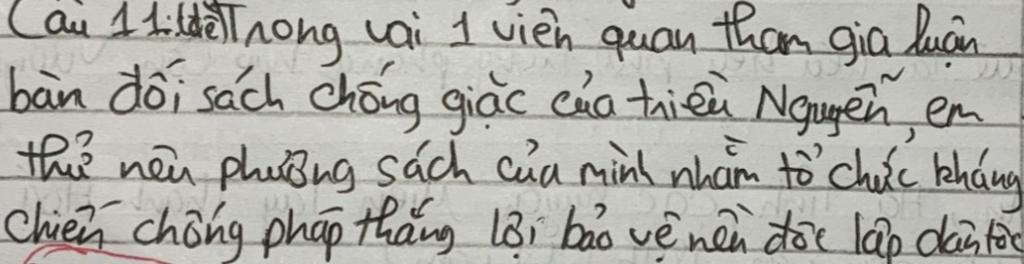 Câu 11: Trong vai 1 viên quan tham gia luận
bàn đối sách chống giặc của triều Nguyễn, em
thử nêu phương sách của mình nhằm tổ chức kháng
chiến chống pháp thắng lợi bảo vệ nền độc lập dân tộc